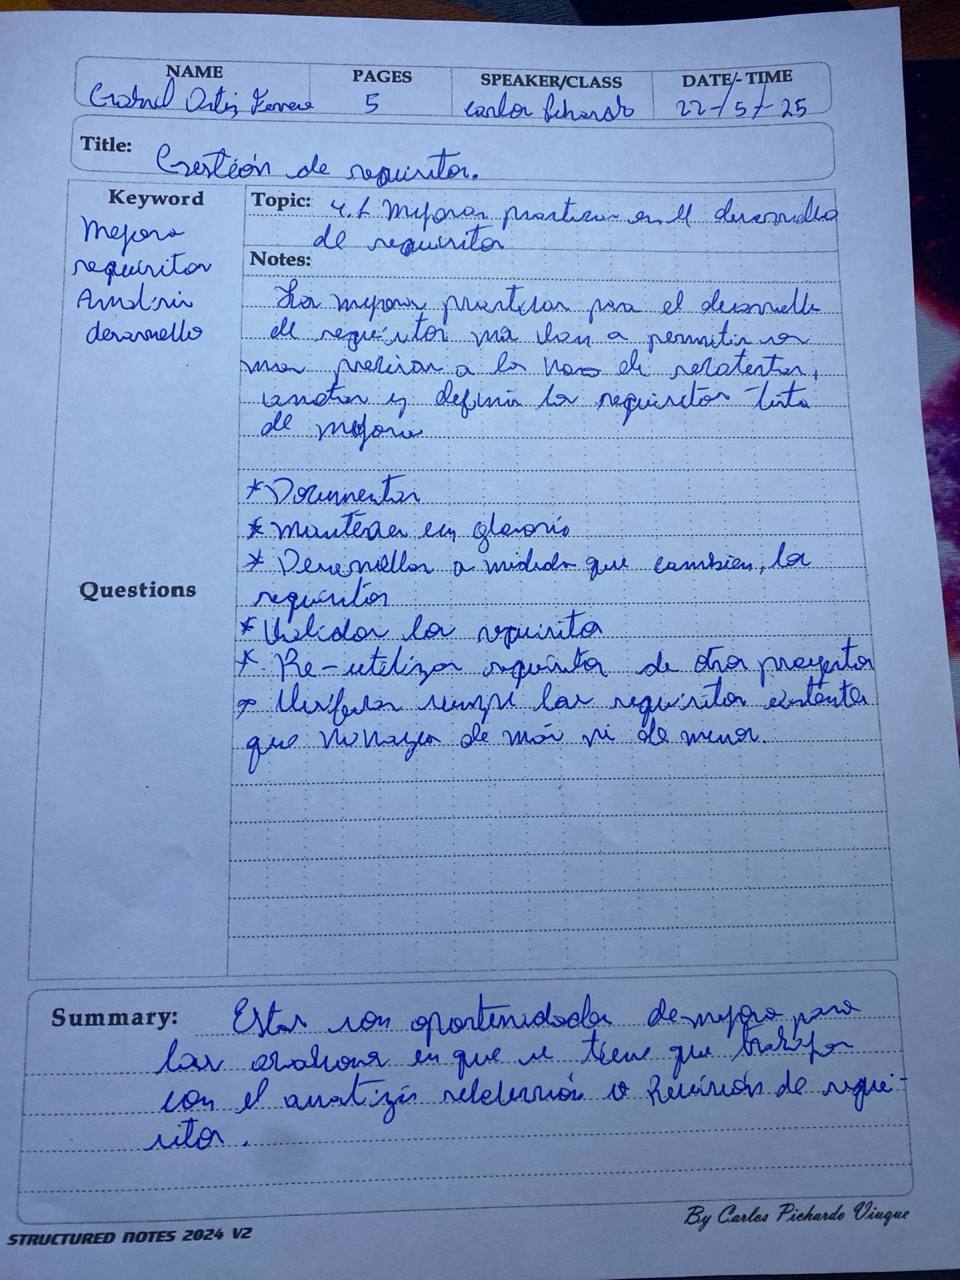 NAME PAGES SPEAKER/CLASS DATE/-TIME
Gabriel Ortiz 5 Carlos Pichardo 22-/5/-25
Title: Gestión de requisitos.
Keyword
Mejora
requisitos
Análisis
desarrollo
Topic: 4.1 Mejoras practicas en el desarrollo
de requisitos
Notes:
Las mejoras practicas para el desarrollo
de requisitos nos van a permitir ser
mas precisos a la hora de
y definir los requisitos
de mejora
*Documentar
*Mantener un glosario
*Desarrollar a medida que cambien, los
requisitos
*Validar los requisitos
*Re-utilizar requisitos de otros proyectos
* Verificar siempre los requisitos existentes
que no hayan de más ni de menos.
Questions
Summary: Estas son oportunidades de mejora para
las en que se tiene que trabajar
con el analizis o de requi-
sitos.
By Carlos Pichardo Viuque
STRUCTURED NOTES 2024 V2